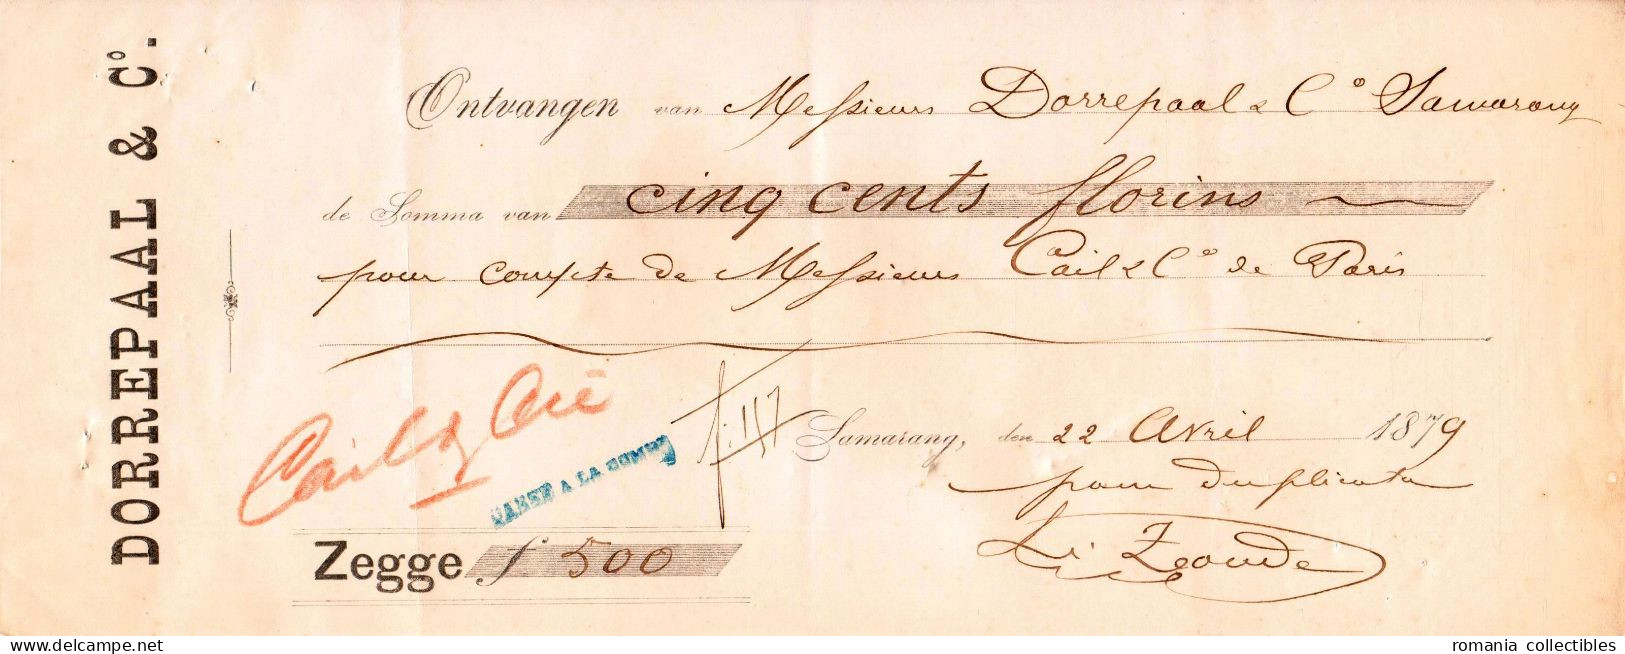 DORREPAAL & Cº.
Ontvangen van Messieurs Dorrepaal & Cº Samarang
de Somma van cinq cents florins
pour compte de Messieurs Cail & Cº de Paris
Cail & Cie
A LA
Samarang, den 22 Avril 1879
pour duplicata
Zegge ƒ 500
romania collectibles